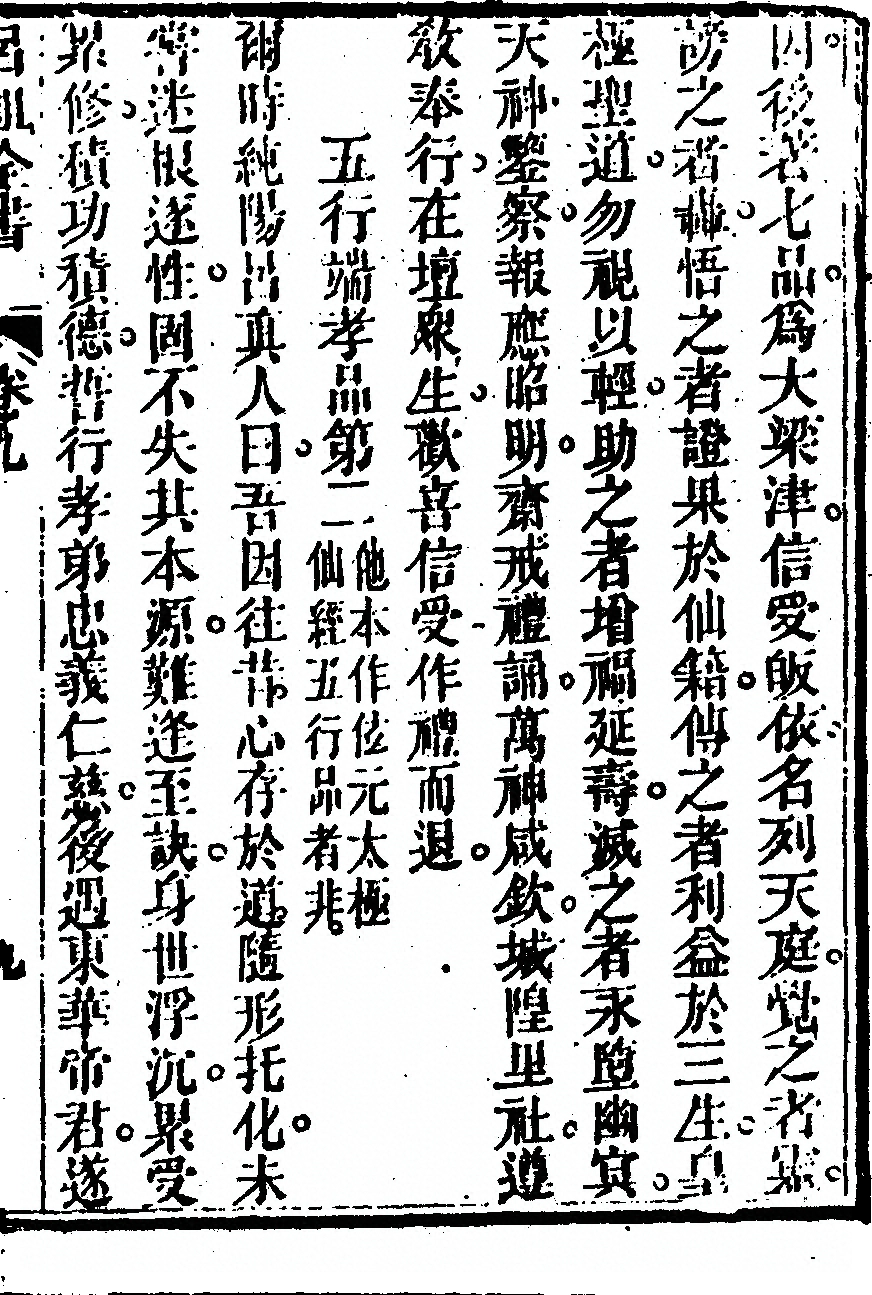 因後著七品爲大梁津信受皈依名列天庭覺之者
謗之者 悟之者證果於仙籍傳之者利益於三生皇
極聖道勿視以輕助之者增福延壽滅之者永墮幽冥
天神鑒察報應昭明齋戒禮誦萬神咸欽城隍里社遵
敕奉行在壇眾生歡喜信受作禮而退
五行端孝品第二他本作位元太極
仙經五行品者非
爾時純陽呂真人曰吾因往昔心存於道隨形托化未
嘗迷根逐性固不失其本源難逢至訣身世浮沉累受
累修積功積德誓行孝弟忠義仁慈後遇東華帝君遂
呂祖全書
卷九
九